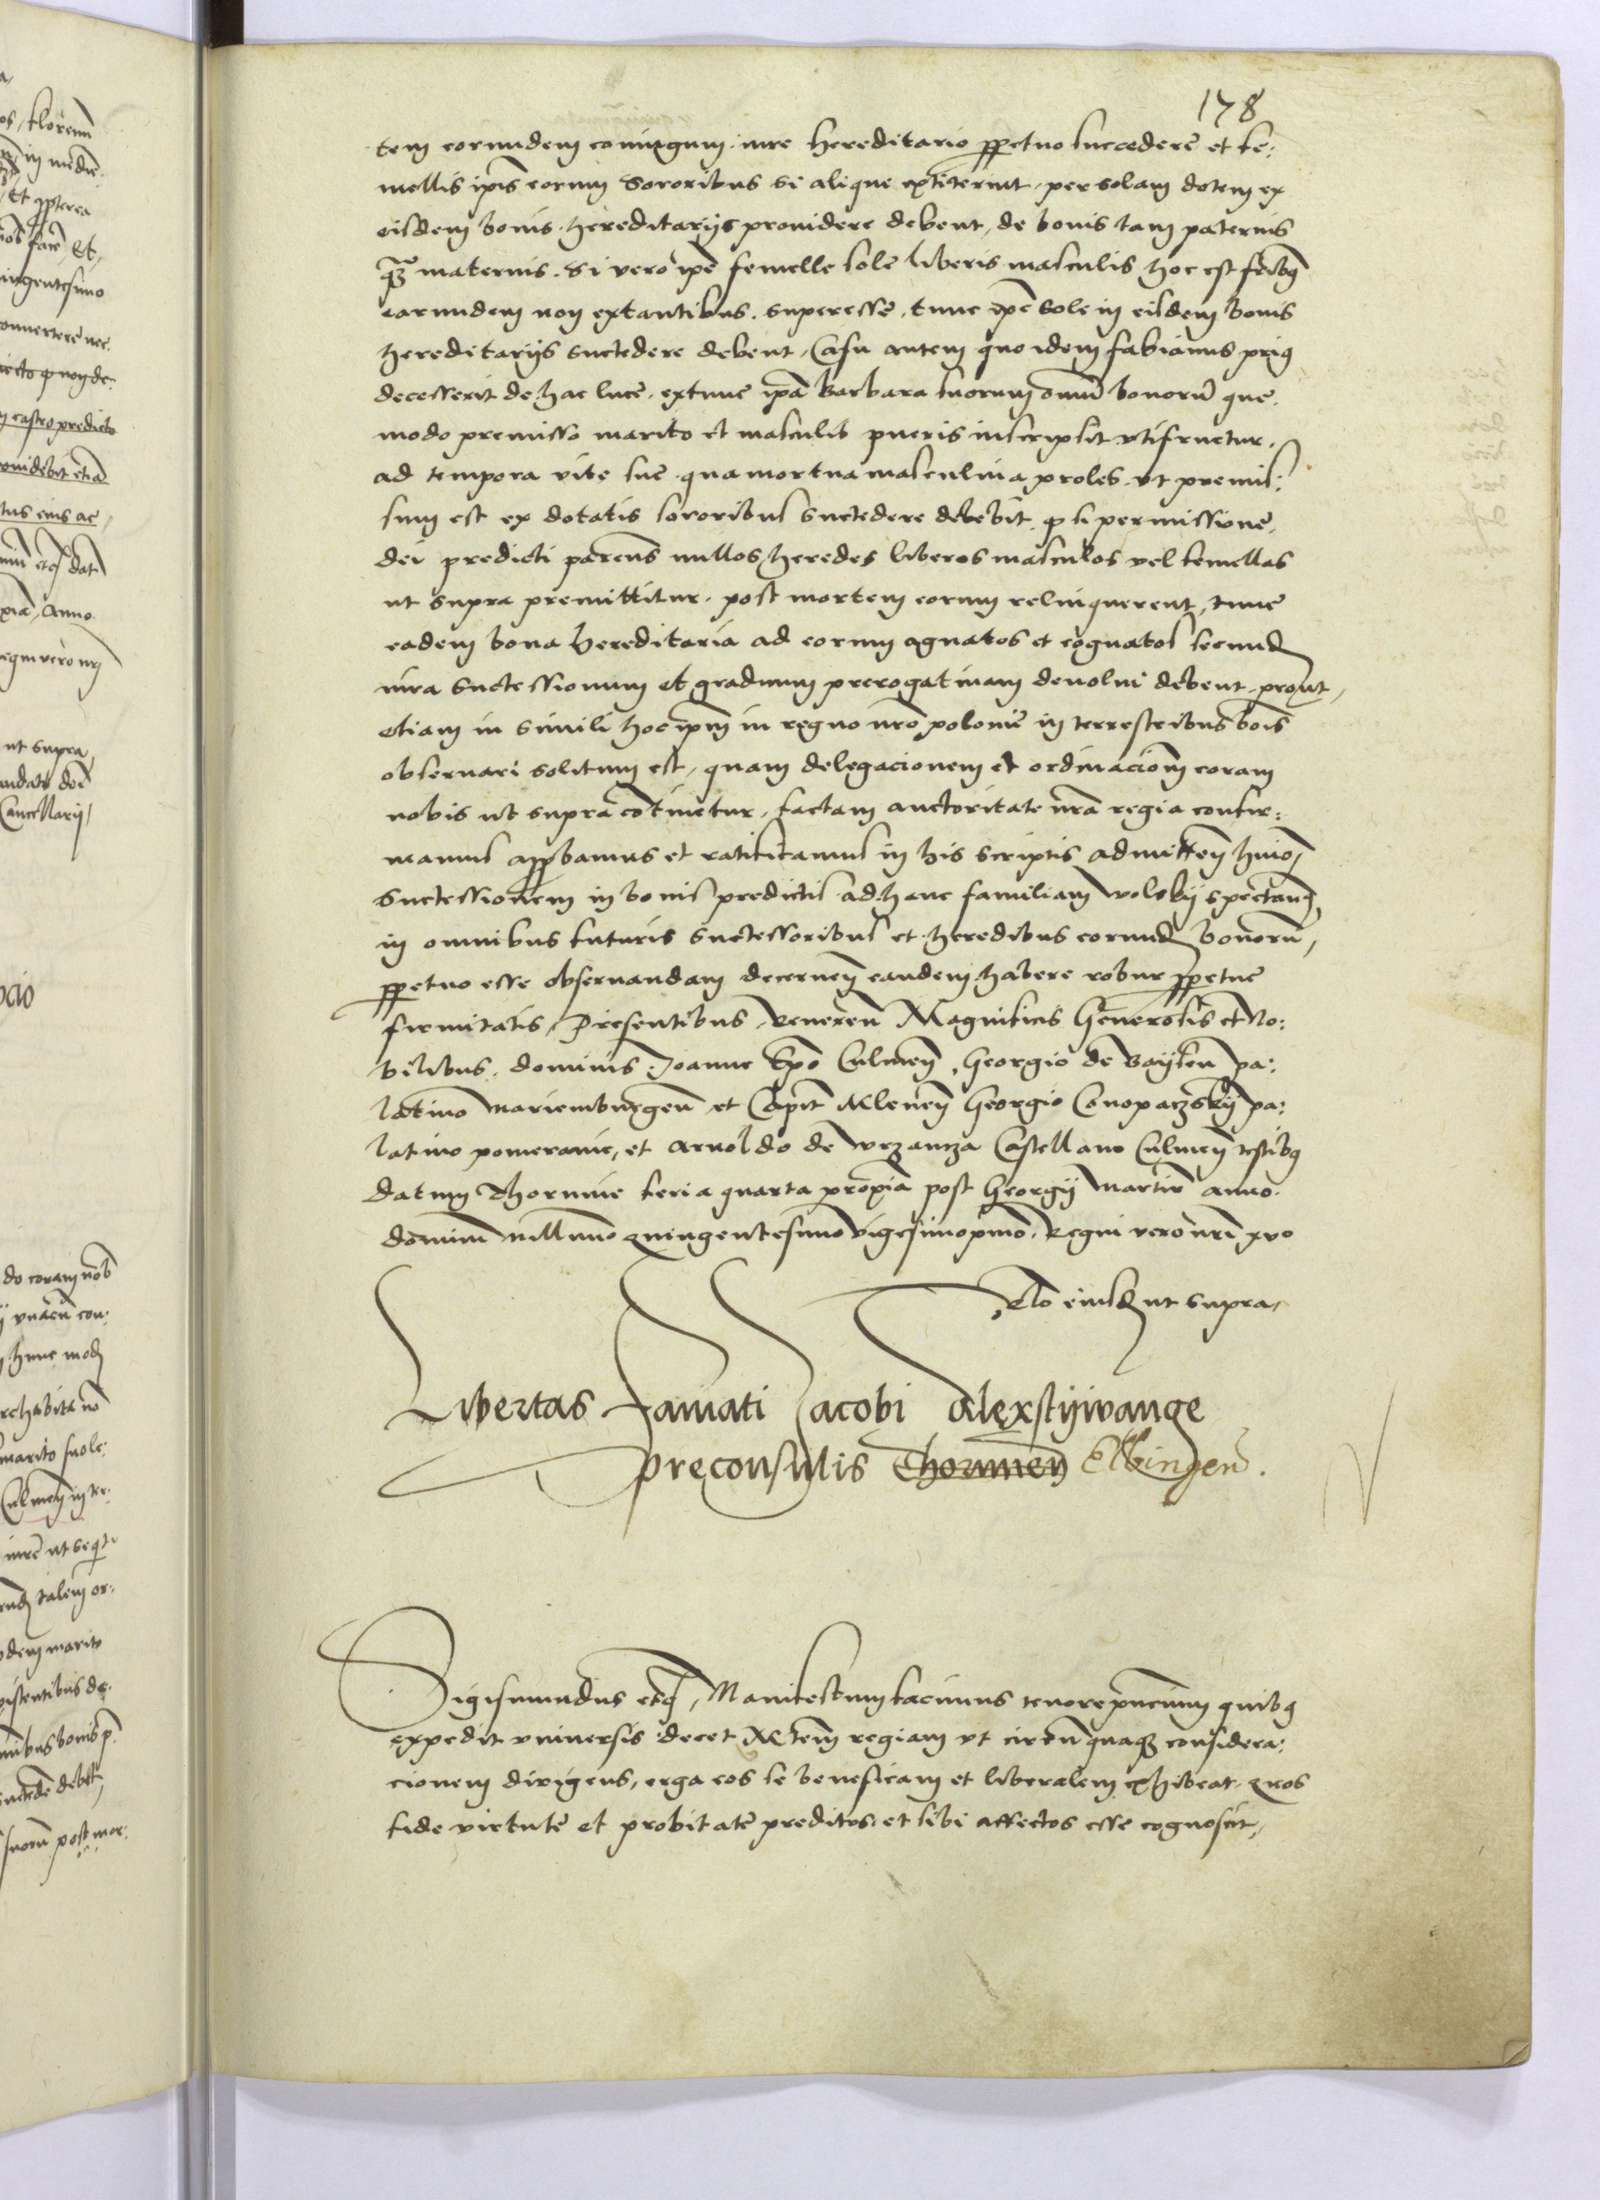 178
tem eorundem coniugum iure hereditario ppetuo succedere et fe:
mellis ipis eorum Sororibus si alique extiterint, per solam dotem ex
eisdem bonis hereditarijs providere debent, de bonis tam paternis
q3 maternis. Si vero ipe femelle sole liberis masculis hoc est fribq
earundem non extantibus superesse, tunc ipe sole in eisdem bonis
hereditarijs succedere debent, Casu autem quo idem fabianus priq
decesserit de hac luce, extunc ipa Barbara suorum omniu bonoru que
modo premisso marito et masculis pueris inscripsit vtifruetur,
ad tempora vite sue, qua mortua masculina proles, vt premis:
sum est ex dotatis sororibus succedere debebit, q si permissione
dei predicti parens nullos heredes liberos masculos vel femellas
ut supra premittitur, post mortem eorum relinquerent, tunc
eadem bona hereditaria ad eorum agnatos et cognatos secund
iura successionum et graduum prerogativam devolui debent, prout,
etiam in simili hoc ipm in regno nro polonie in terrestribus bois
observari solitum est, quam delegacionem et ordinaciom coram
nobis ut supra cotinetur, factam auctoritate nra regia confir:
mamus appbamus et ratificamus in his scriptis admitten huiq
successionem in bonis predictis ad hanc familiam wolskij spectan
in omnibus futuris successoribus et heredibus eorund bonoru,
ppetuo esse observandam decernen eandem habere robur ppetue
firmitatis, Presentibus, Reveren Magnificis Generosis et No:
bilibus, dominis Joanne Epo Culmen, Georgio de Baijsen pa:
latino mariemburgen et Capit Mlenen Georgio Conopaczskij pa:
latino pomeranie, et arnoldo de vrzancza Castellano Culmen testibq
datum Thorunie feria quarta proxia post Georgij martir anno
domini millmo quingentesimo vigesimopmo, Regni vero nri xvo
Rlo eiusd ut supra,
Libertas Famati Jacobi Alexstijwange
preconsulis Thorunen Elbingen.
Sigismundus etc, Manifestum facimus tenore pncium quibq
expedit vniversis, decet Mtem regiam vt circu quaq3 considera:
cionem dirigens, erga eos se beneficam et liberalem exhibeat, quos
fide virtute et probitate preditos et sibi affectos esse cognoscit,